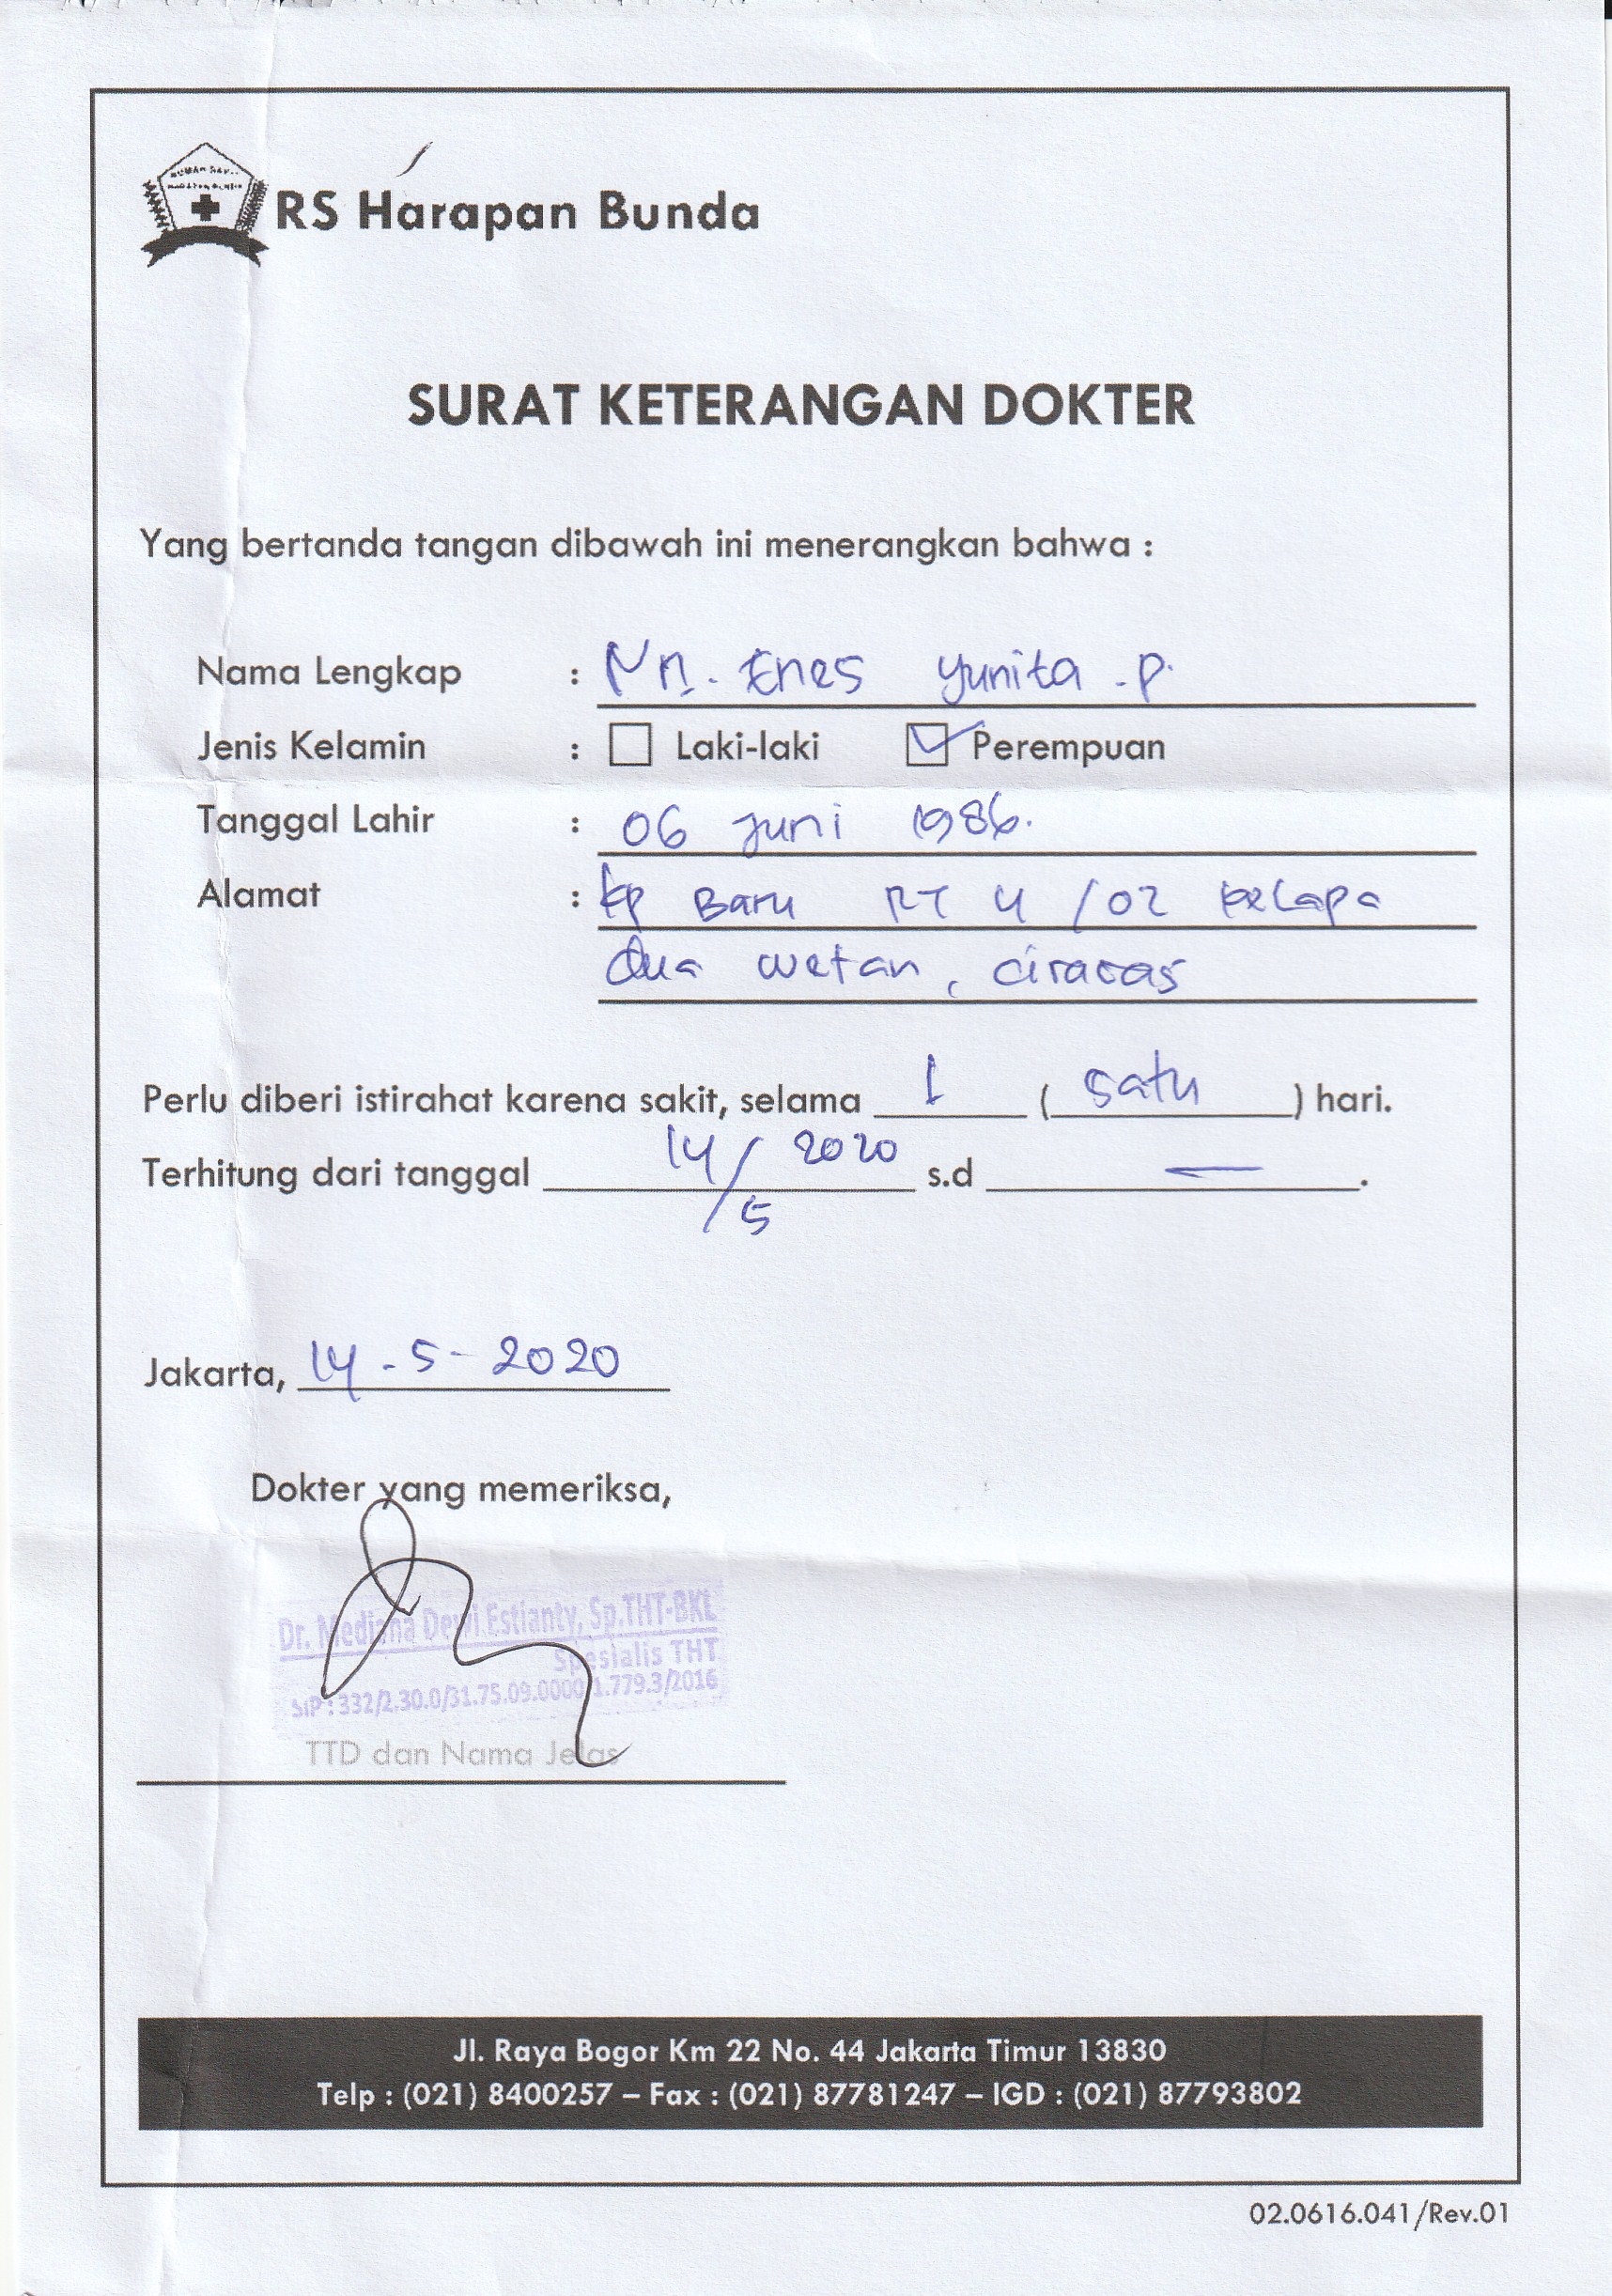 RS Harapan Bunda
SURAT KETERANGAN DOKTER
Yang bertanda tangan dibawah ini menerangkan bahwa :
Nama Lengkap : Nn. Enes Yunita .P.
Jenis Kelamin : Laki-laki Perempuan
Tanggal Lahir : 06 Juni 1986.
Alamat : kp Baru RT 4 /02 kelapa
dua wetan, ciracas
Perlu diberi istirahat karena sakit, selama 1 ( satu ) hari.
Terhitung dari tanggal 14/5 2020 s.d —.
Jakarta, 14-5-2020
Dokter yang memeriksa,
Dr. Mediana Dewi Estianty, Sp.THT-BKL
Spesialis THT
SIP : 332/2.30.0/31.75.09.0000 1.779.3/2016
TTD dan Nama Jelas
Jl. Raya Bogor Km 22 No. 44 Jakarta Timur 13830
Telp : (021) 8400257 – Fax : (021) 87781247 – IGD : (021) 87793802
02.0616.041/Rev.01